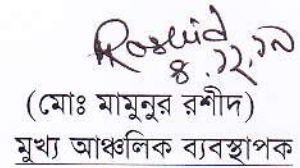 Rashid
৪.১২.১৯
(মোঃ মামুনুর রশীদ)
মুখ্য আঞ্চলিক ব্যবস্থাপক